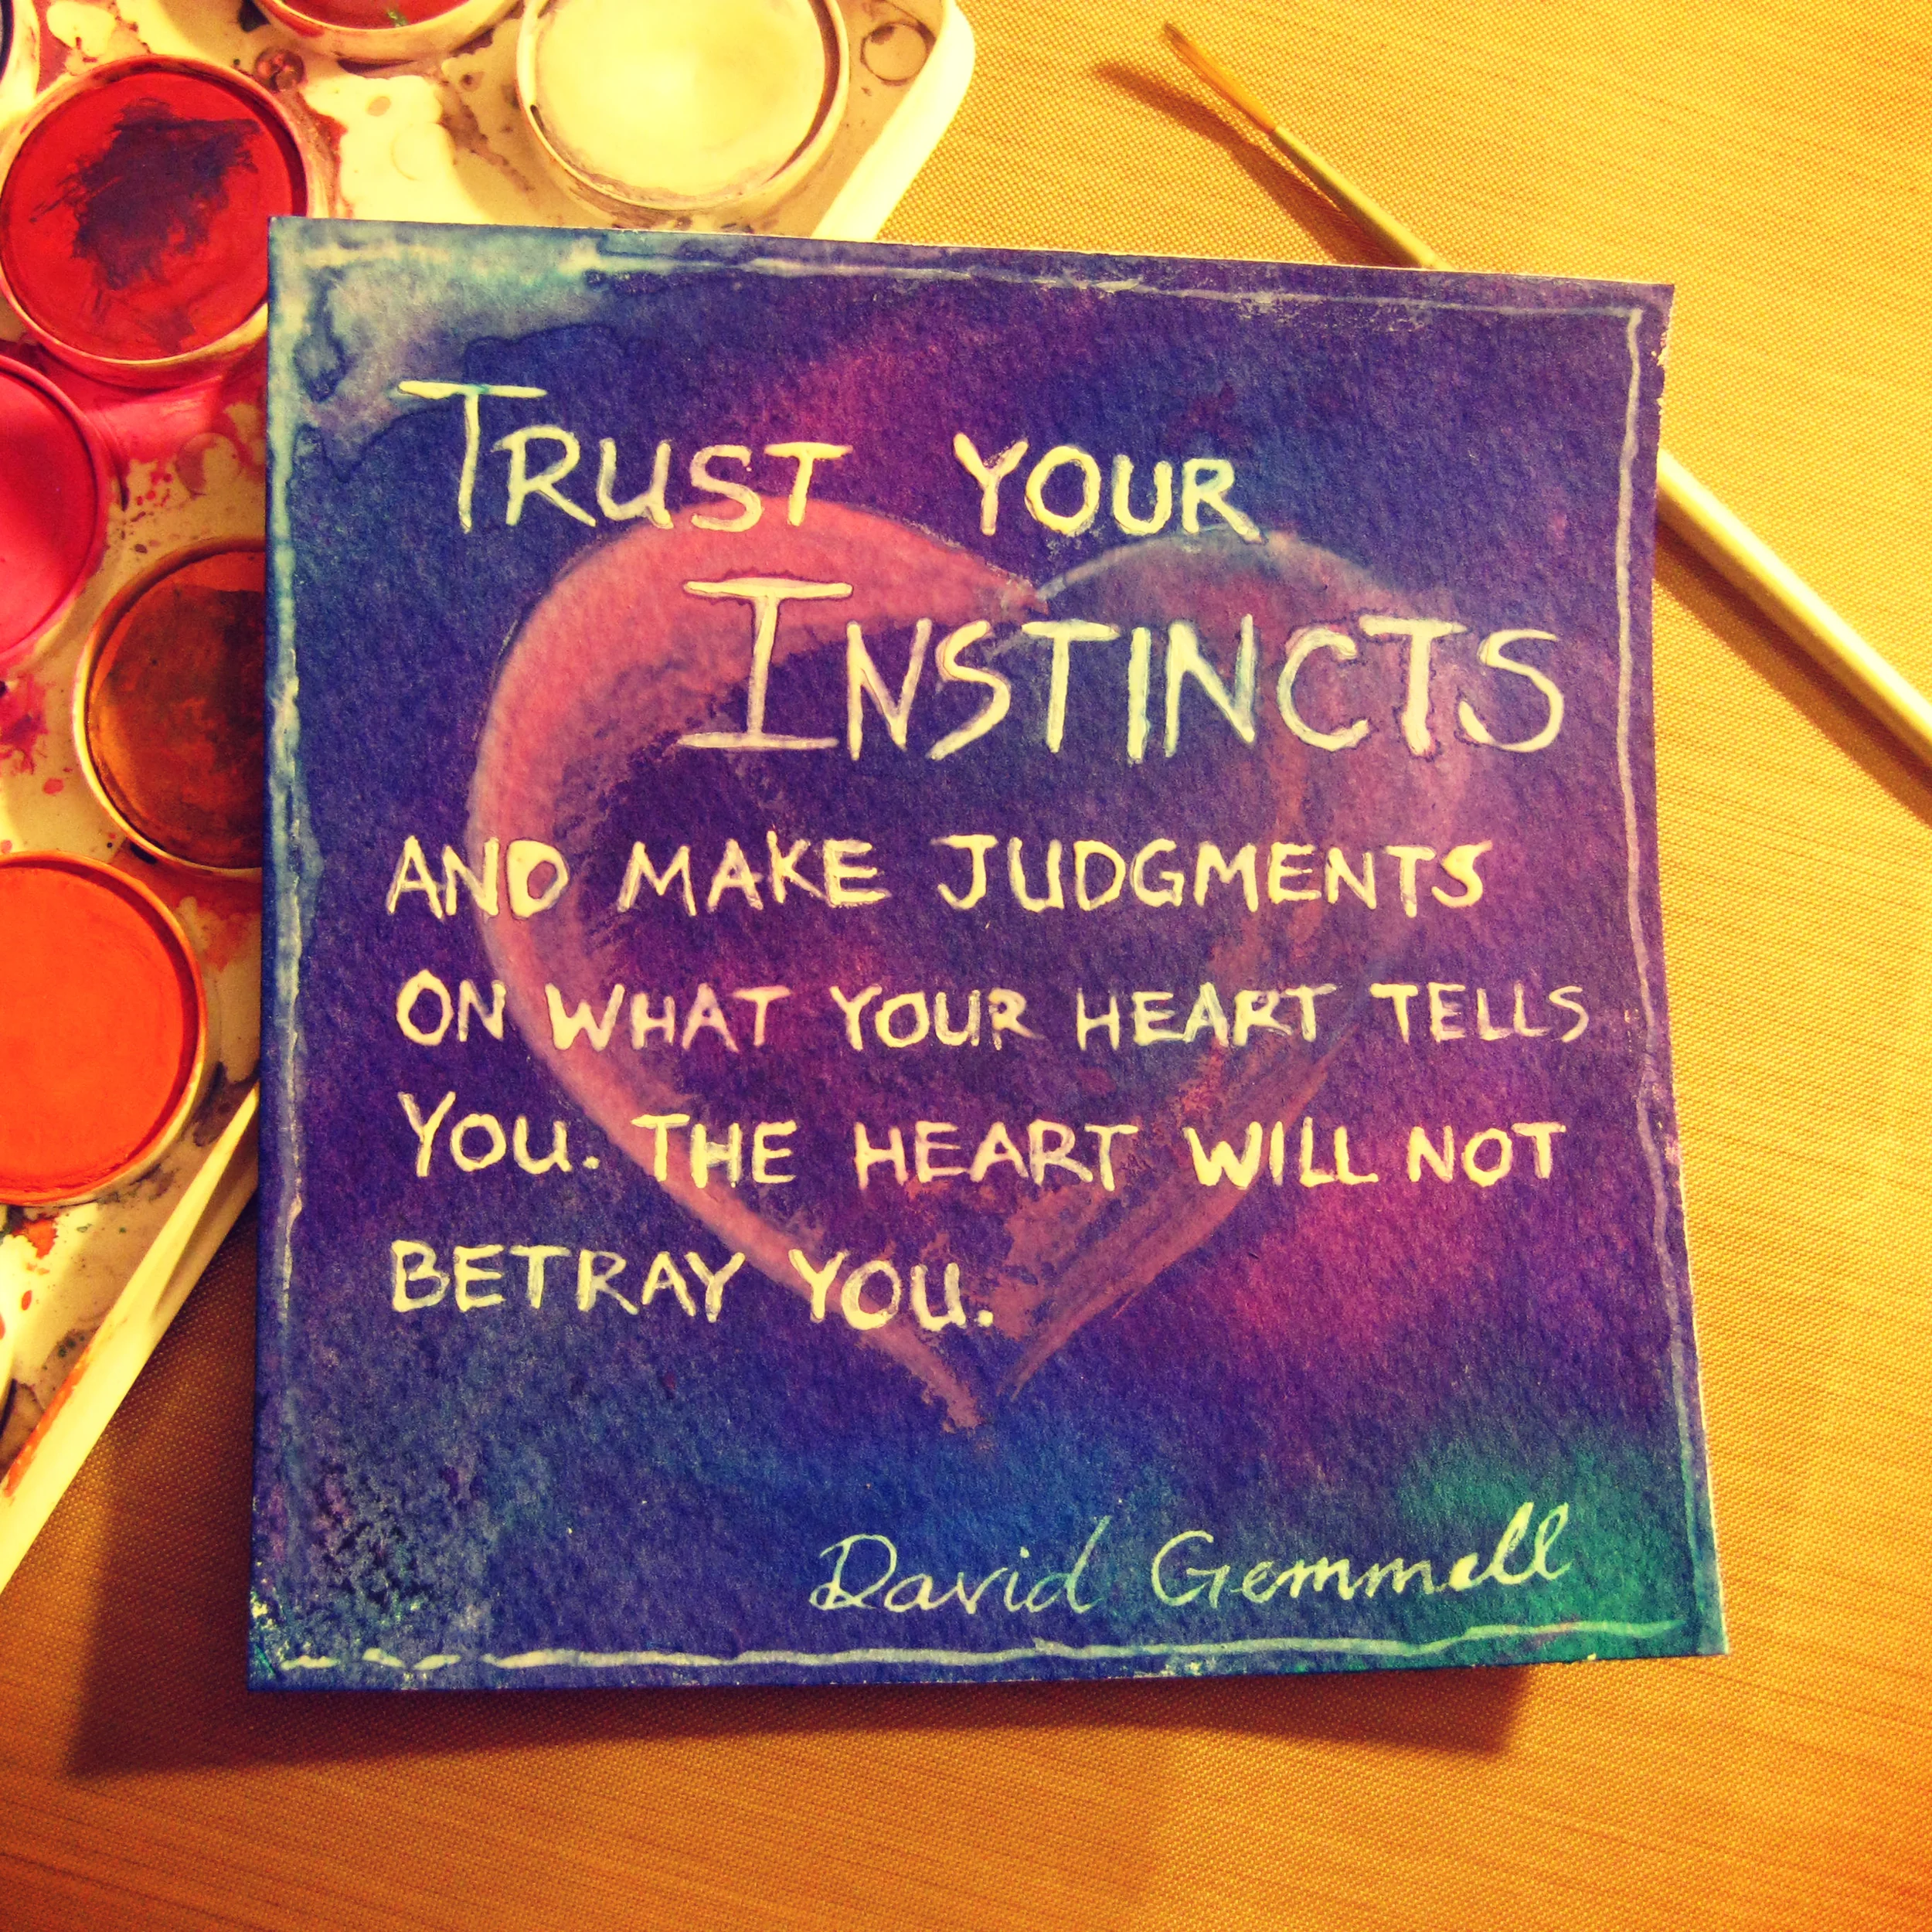 TRUST YOUR
INSTINCTS
AND MAKE JUDGMENTS
ON WHAT YOUR HEART TELLS
YOU. THE HEART WILL NOT
BETRAY YOU.
David Gemmell